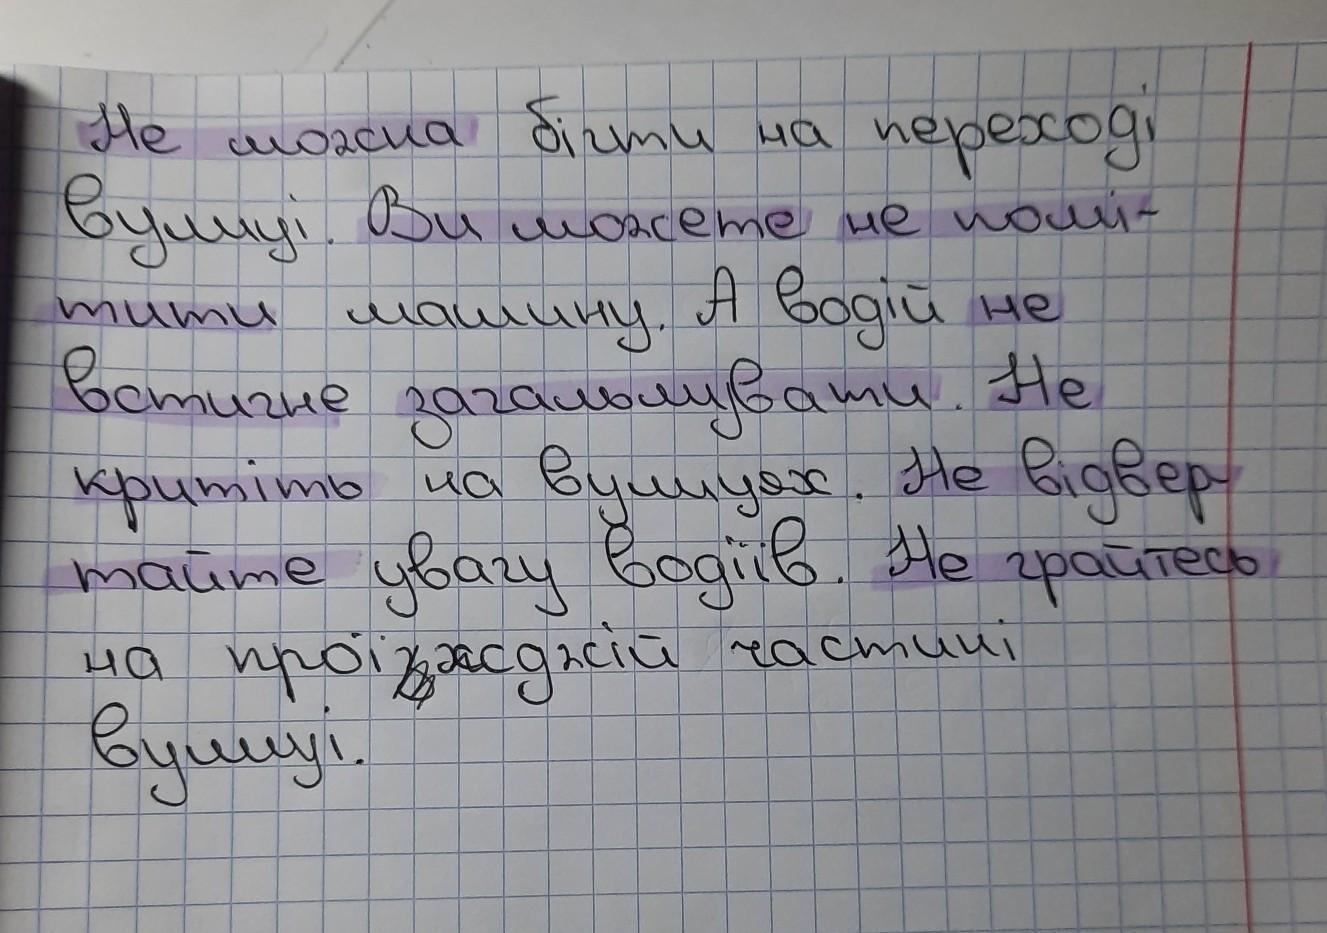 Не можна бігти на переході
вулиці. Ви можете не помі-
тити машину. А водій не
встигне загальмувати. Не
критіть на вулицях. Не відвер-
тайте увагу водіїв. Не грайтесь
на проїжджій частині
вулиці.